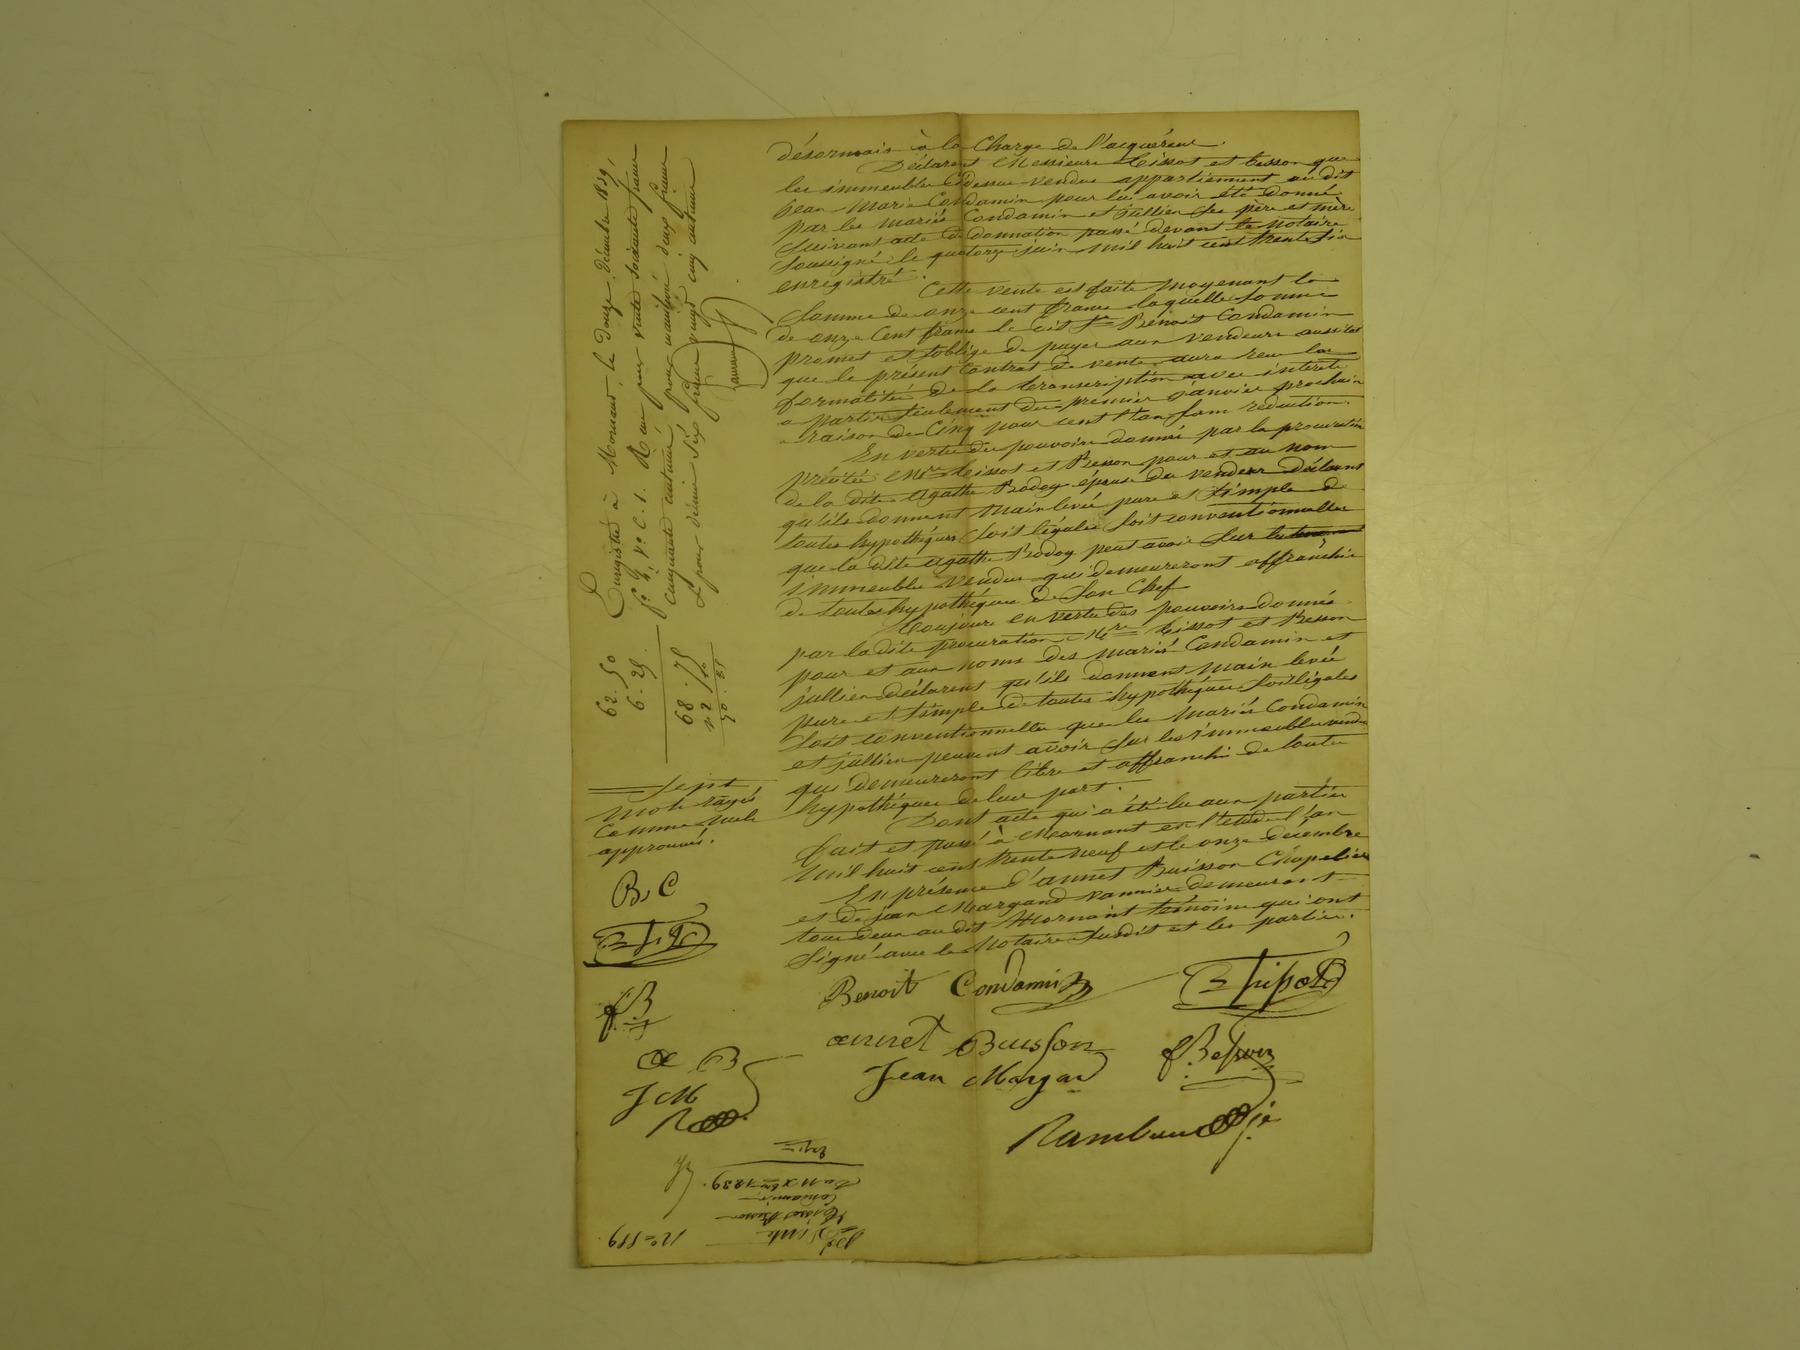 désormais à la Charge de l'acquéreur.
Déclarent Messieurs tissot et besson que
les immeubles Cidessus vendus appartiennent au dit
Jean Marie Condamin pour lui avoir été donné
par les mariés Condamin et Jullien ses père et mère
suivant acte de donnation passé devant le Notaire
soussigné le quatorze juin mil huit cent trente six
enregistré.
Cette vente est faite moyenant la
somme de onze cent francs laquelle somme
de onze Cent francs le dit Sr Benoit Condamin
promet et soblige de payer aux vendeurs aussitot
que le présent Contrat de vente aura reçu la
formalitée de la transcription avec intérêts
a partir seulement du premier Janvier prochain
a raison de Cinq pour cent l'an sans réduction.
En vertu des pouvoirs donnés par la procuration
précitée Mrs tissot et Besson pour et au nom
de la dite Agathe Bodoy épouse du vendeur déclarent
qu'ils donnent main levée pure et simple de
toutes hypothéques soit légales soit conventionnelles
que la dite Agathe Bodoy peut avoir sur les
immeubles vendus qui demeureront affranchis
de toutes hypothéques de son Chef
Toujours en vertu des pouvoirs donnés
par la dite procuration Mrs tissot et Besson
pour et aux noms des mariés Condamin et
jullien déclarent qu'ils donnent main levée
pure et simple de toutes hypothéques soit légales
soit conventionnelles que les mariés Condamin
et jullien peuvent avoir sur les immeubles vendus
qui demeureront libre et affranchis de toutes
hypothéques de leur part.
Dont acte qui a été lu aux parties
fait et passé à Mornant en l'etude l'an
mil huit cent trente neuf et le onze décembre
En présence d'annet Buisson Chapelier
et de jean Margand vannier demeurant
tous deux au dit Mornant témoins qui ont
signé avec le Notaire susdit et les parties.
Benoit Condamin
annet Buisson
Jean Margan
f Besson
Enregistré à Mornant, le douze décembre 1839,
fo 4 Vo C. 1. Reçu pour vente soixante francs
cinquante centimes, pour mainlevé deux francs
et pour décime six francs vingt cinq centimes
62. 50
6. 25
68. 75
Sept
mots rayés
comme nuls
approuvés.
B C
f B
a B
J M
No 559.
Vente
tissot Besson
Condamin
du 11 Xbre 1839.